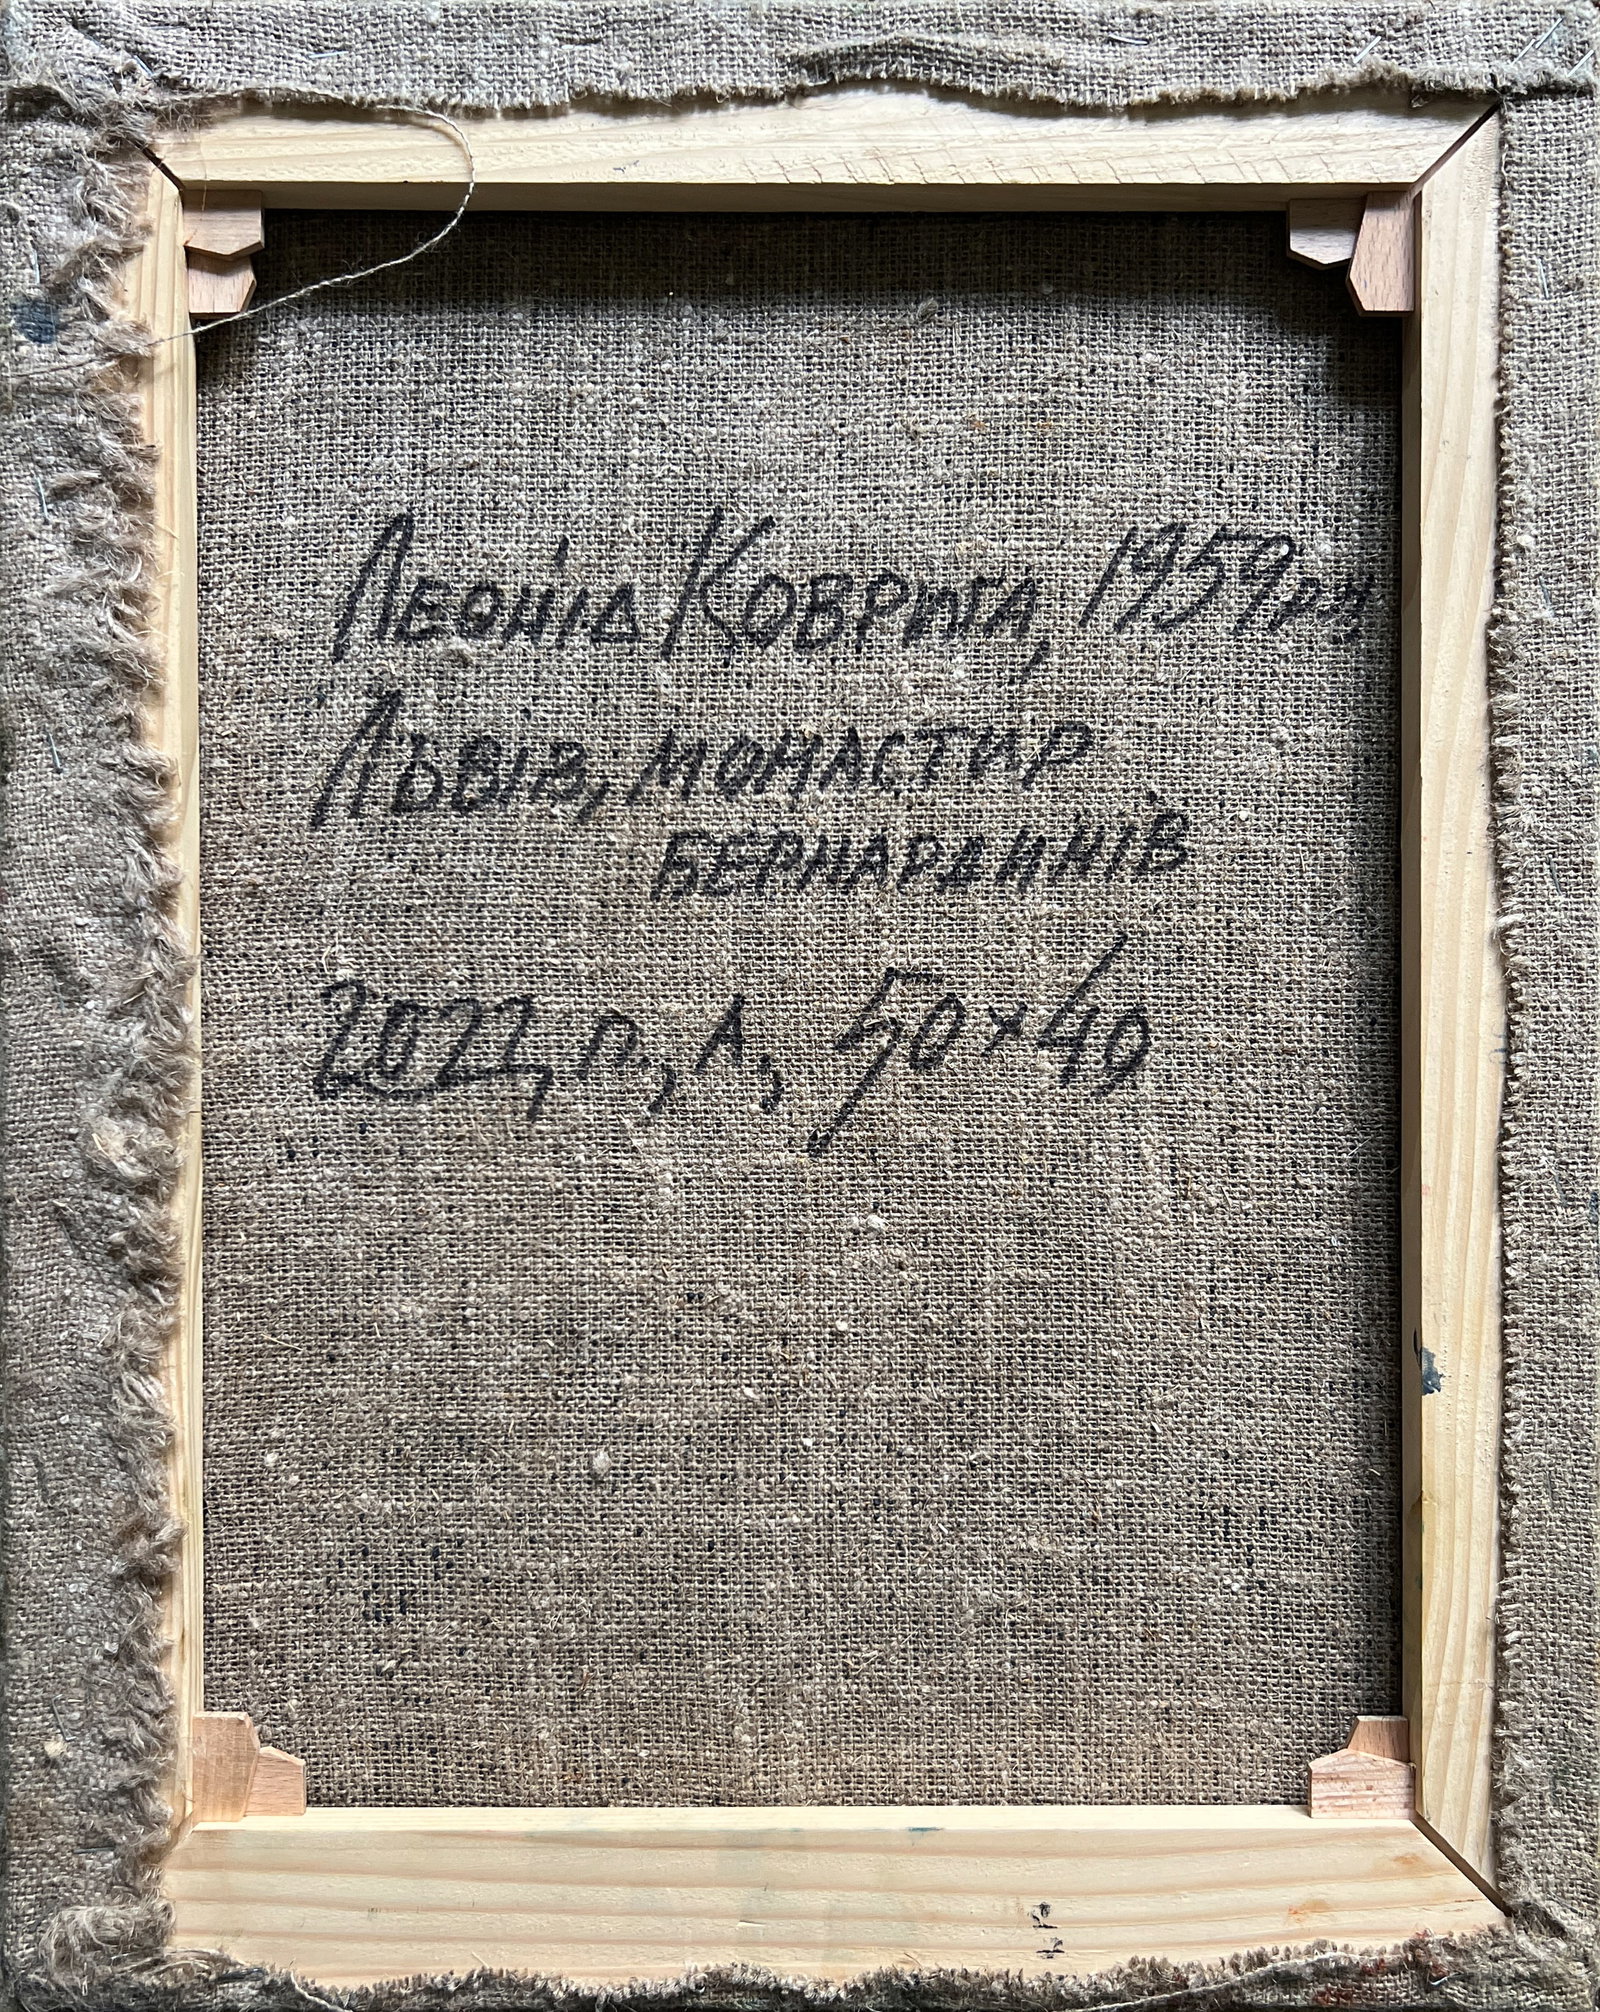 Леонід Коврига, 1959 р.н,
Львів, монастир
Бернардинів
2022, п, л, 50×40